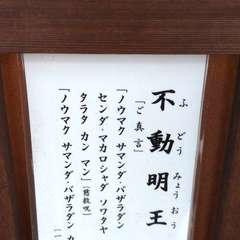 不動明王
ふどうみょうおう
「ご真言」
「ノウマク サマンダ・バザラダン
センダ・マカロシャダ ソワタヤ
タラタ カン マン」(慈救呪)
「ノウマク サマンダ・バザラダン カ